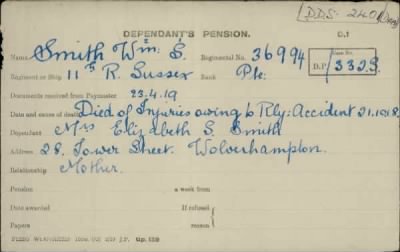 D.D.S. 2401
DEPENDANT'S PENSION.
D.1
Name Smith Wm. S. Regimental No. 36994
Case No.
D.P/3323
Regiment or Ship 11th R. Sussex Rank Pte.
Documents received from Paymaster 23.4.19
Date and cause of death Died of Injuries owing to Rly: Accident 21.10.18.
Dependant Mrs Elizabeth S. Smith
Address 28. Tower Street. Wolverhampton.
Relationship Mother.
Pension a week from
Date awarded If refused
Papers reason